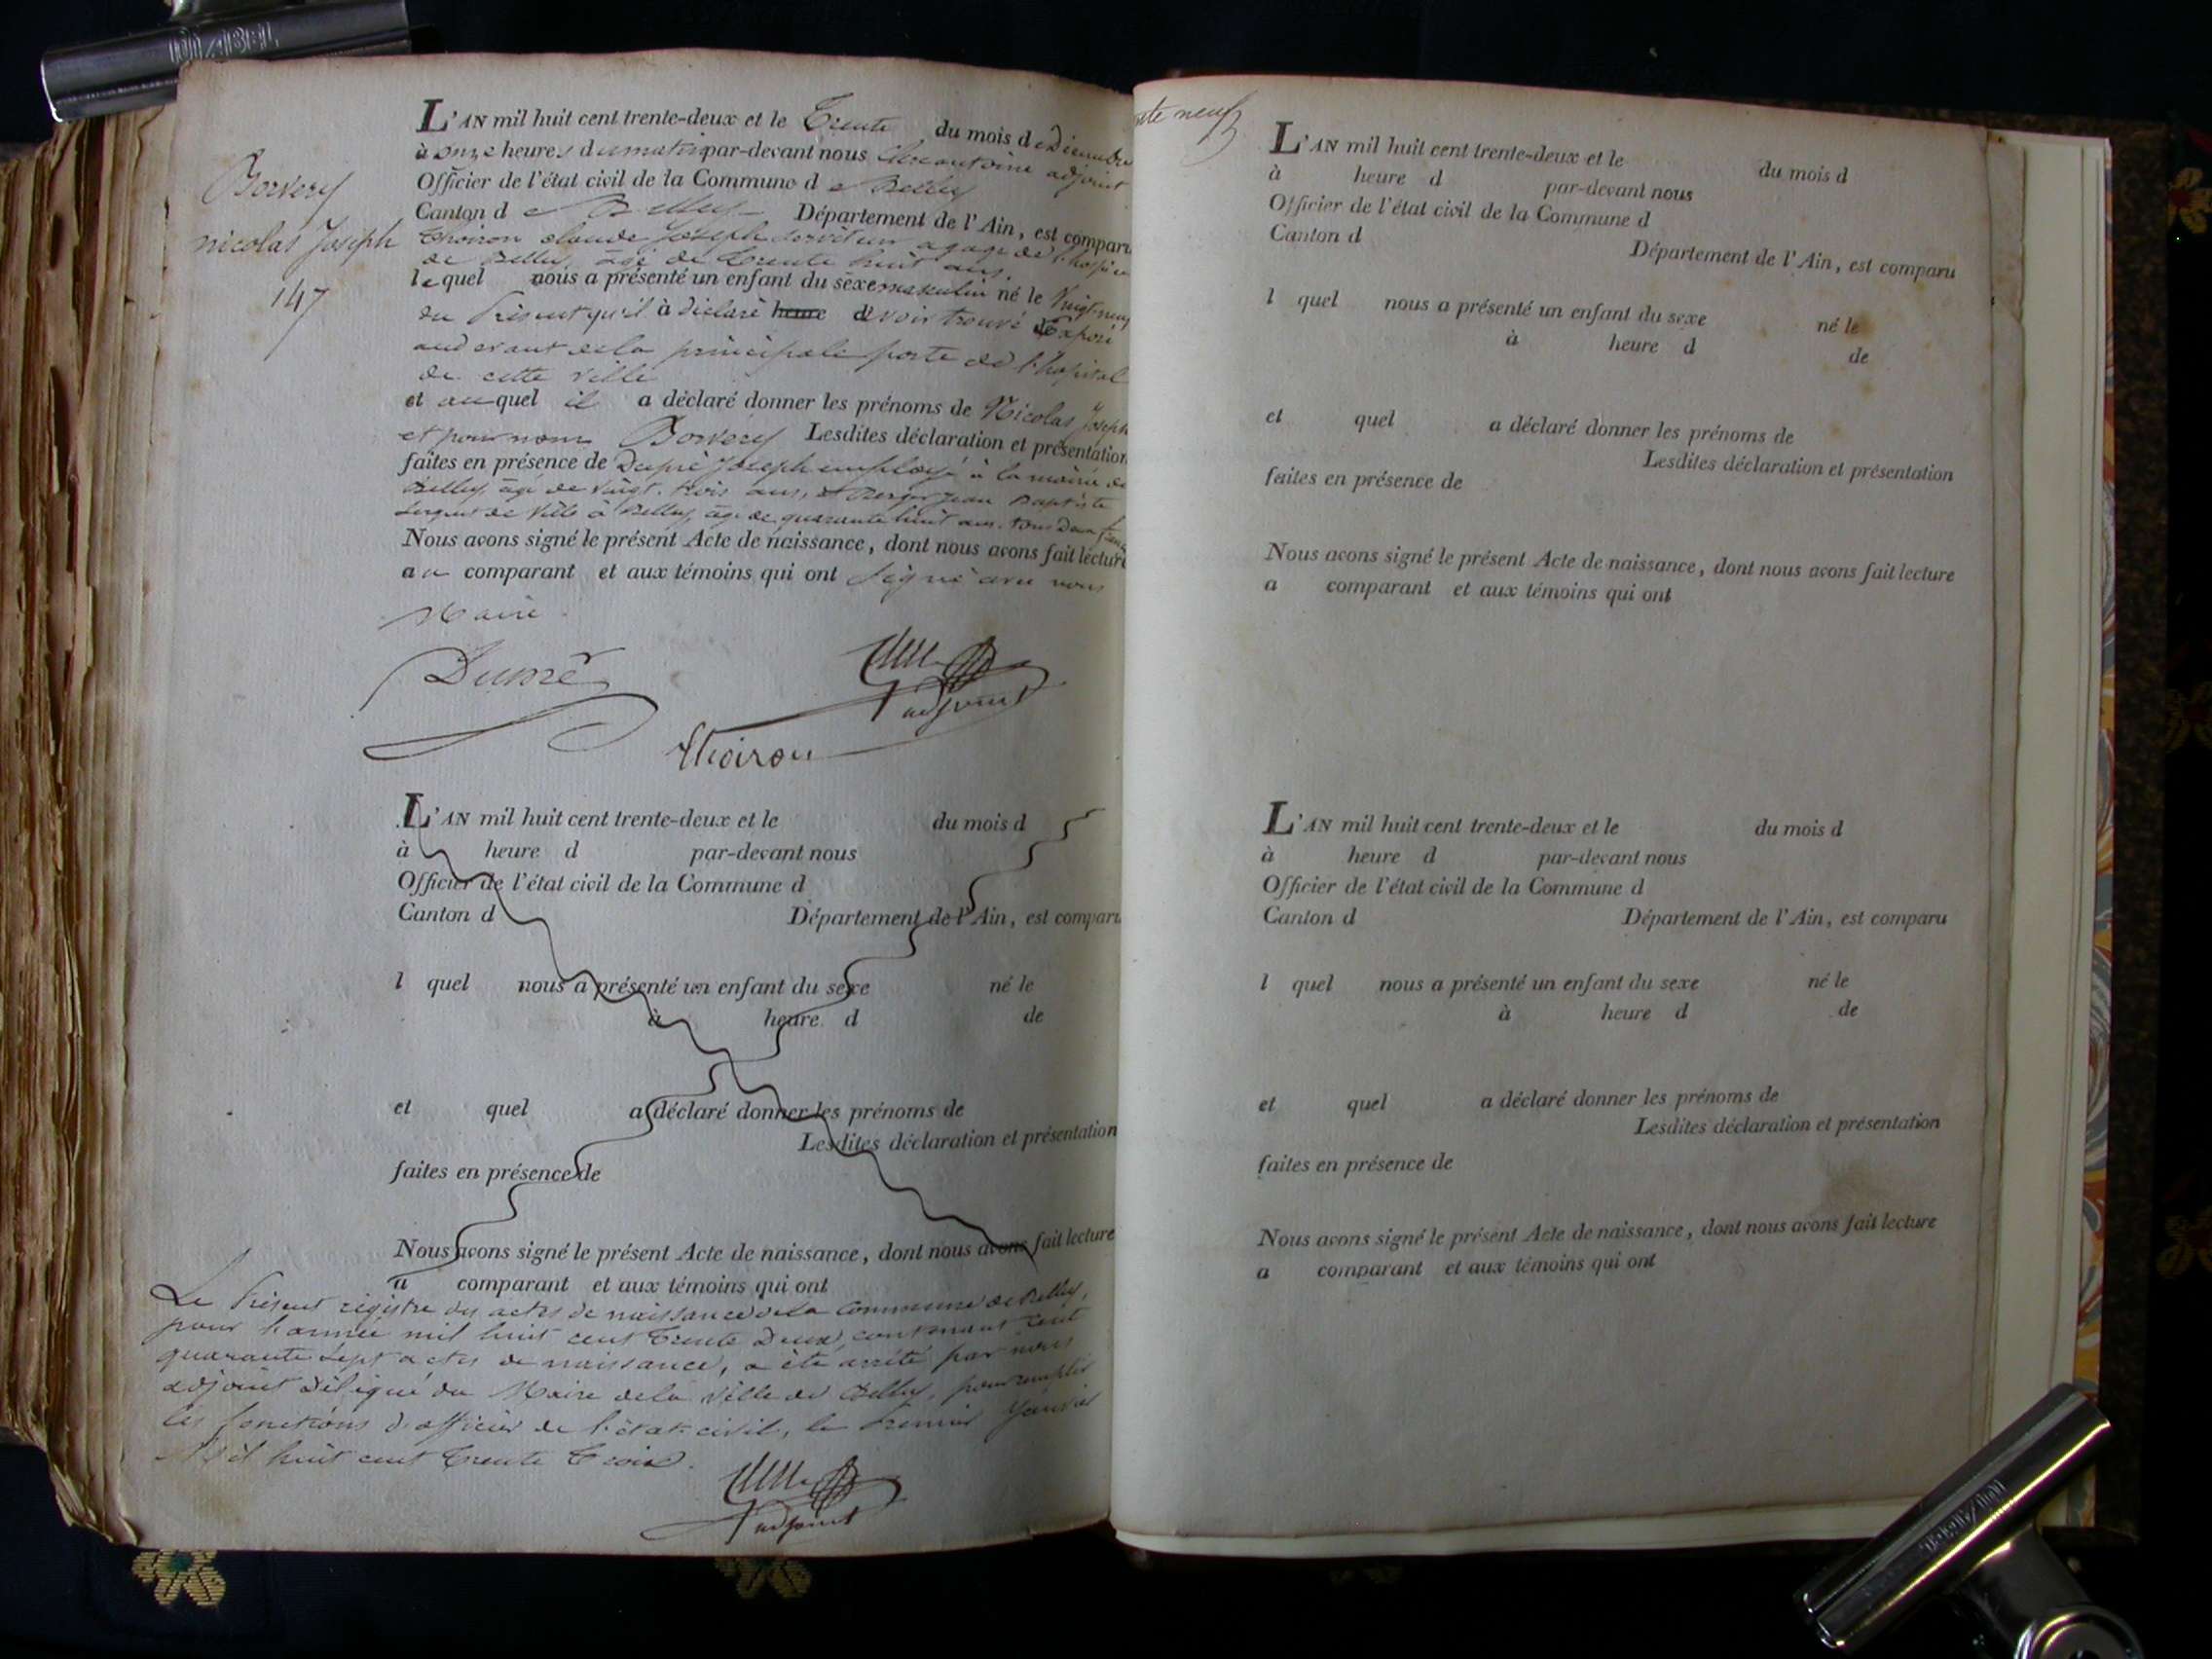 Borvery
nicolas Joseph
147
L'AN mil huit cent trente-deux et le Trente du mois de Décembre
à onze heures du matin par-devant nous antoine adjoint
Officier de l'état civil de la Commune de Belley
Canton de Belley Département de l'Ain, est comparu
Thoiron claude Joseph serviteur a gage de l'hospice
de Belley, âgé de trente huit ans.
lequel nous a présenté un enfant du sexe masculin né le Vingt-neuf
du Présent qu'il à déclaré heure d'avoir trouvé Exposé
audevant de la principale porte de l'hopital
de cette ville
et auquel il a déclaré donner les prénoms de Nicolas Joseph
et pour nom Borvery Lesdites déclaration et présentation
faites en présence de Dupré Joseph employé à la mairie de
Belley, âgé de vingt-trois ans, et Berger Jean Baptiste
Sergent de Ville à Belley, âgé de quarante huit ans. tous deux
Nous avons signé le présent Acte de naissance, dont nous avons fait lecture
au comparant et aux témoins qui ont Signé avec nous
Maire.
Dupré
adjoint
Thoiron
L'AN mil huit cent trente-deux et le du mois d
à heure d par-devant nous
Officier de l'état civil de la Commune d
Canton d Département de l'Ain, est comparu
l quel nous a présenté un enfant du sexe né le
à heure d de
et quel a déclaré donner les prénoms de
Lesdites déclaration et présentation
faites en présence de
Nous avons signé le présent Acte de naissance, dont nous avons fait lecture
a comparant et aux témoins qui ont
Le Présent registre des actes de naissance de la Commune de Belley,
pour l'année mil huit cent trente Deux, contenant cent
quarante Sept actes de naissance, a été arrêté par nous
adjoint délégué du Maire de la Ville de Belley, pour remplir
les fonctions d'officier de l'état civil, le Premier Janvier
Mil huit cent trente trois.
adjoint
neuf
L'AN mil huit cent trente-deux et le du mois d
à heure d par-devant nous
Officier de l'état civil de la Commune d
Canton d Département de l'Ain, est comparu
l quel nous a présenté un enfant du sexe né le
à heure d de
et quel a déclaré donner les prénoms de
Lesdites déclaration et présentation
faites en présence de
Nous avons signé le présent Acte de naissance, dont nous avons fait lecture
a comparant et aux témoins qui ont
L'AN mil huit cent trente-deux et le du mois d
à heure d par-devant nous
Officier de l'état civil de la Commune d
Canton d Département de l'Ain, est comparu
l quel nous a présenté un enfant du sexe né le
à heure d de
et quel a déclaré donner les prénoms de
Lesdites déclaration et présentation
faites en présence de
Nous avons signé le présent Acte de naissance, dont nous avons fait lecture
a comparant et aux témoins qui ont